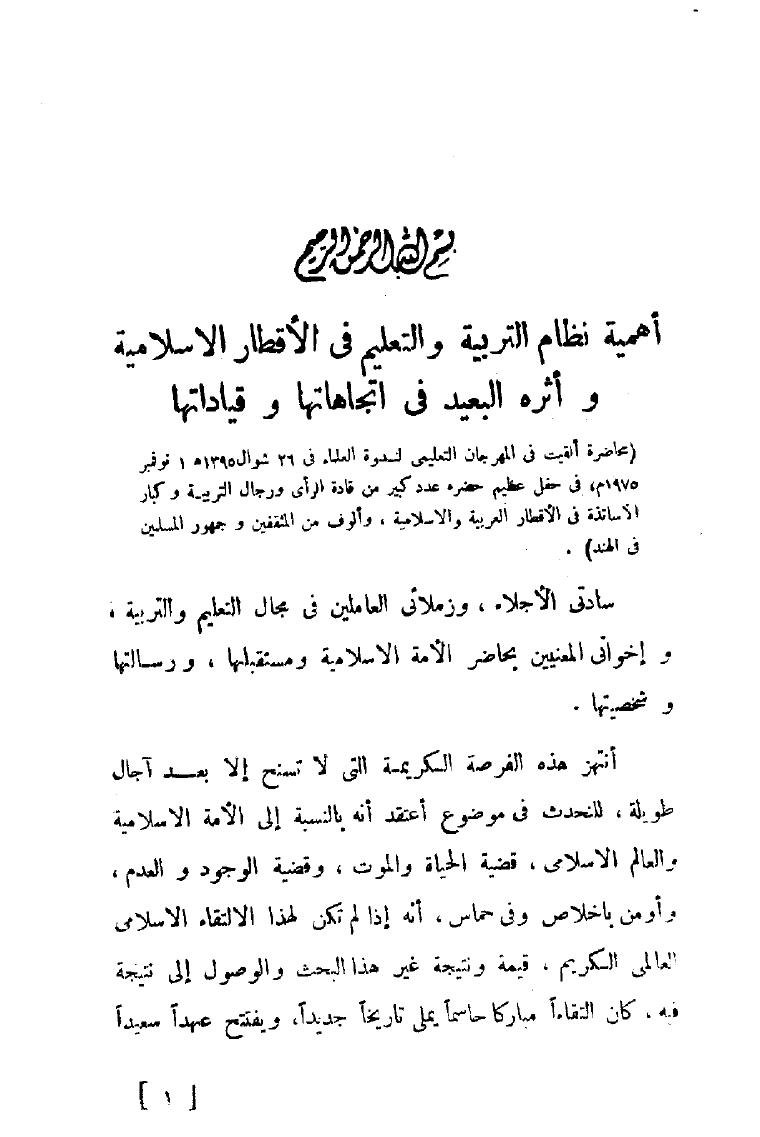 بسم الله الرحمن الرحيم
أهمية نظام التربية والتعليم فى الأقطار الاسلامية
و أثره البعيد فى اتجاهاتها و قياداتها
(محاضرة ألقيت فى المهرجان التعليمى لندوة العلماء فى ٢٦ شوال ١٣٩٥ﻫ ١ نوفمبر
١٩٧٥م، فى حفل عظيم حضره عدد كبير من قادة الرأى ورجال التربية و كبار
الأساتذة فى الأقطار العربية والاسلامية ، وألوف من المثقفين و جمهور المسلمين
فى الهند) .
سادتى الأجلاء ، وزملائى العاملين فى مجال التعليم والتربية ،
و إخوانى المعنيين بحاضر الأمة الاسلامية ومستقبلها ، ورسالتها
و شخصيتها .
أنتهز هذه الفرصة الكريمة التى لا تسنح إلا بعد آجال
طويلة ، للتحدث فى موضوع أعتقد أنه بالنسبة إلى الأمة الاسلامية
والعالم الاسلامى ، قضية الحياة والموت ، وقضية الوجود و العدم ،
وأومن باخلاص وفى حماس ، أنه إذا لم تكن لهذا الالتقاء الاسلامى
العالمى الكريم ، قيمة ونتيجة غير هذا البحث والوصول إلى نتيجة
فيه ، كان التقاءاً مباركا حاسماً يملى تاريخاً جديداً، ويفتتح عهداً سعيداً
[ ١ ]